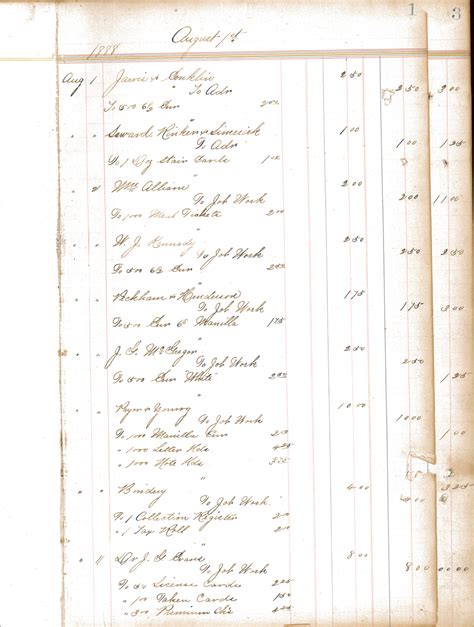 1 3
August 1st
1888
Aug 1 Jarvis & Conklin 2 50
" To Adv 2 50 3 00
To 500 6½ Env 2 50
" Kinken & Limerick 1 00
To Adv 1 00 1 25
To 1 Doz Stair Cards 1 00
" 2 Wm Allison 2 00
To Job Work 2 00 11 00
To 1000 Meal Tickets 2 00
" " W. J. Kennedy 2 50
" To Job Work 2 50 3 00
To 500 6½ Env 2 50
" " Peckham & Henderson 1 75
" To Job Work 1 75 3 00
To 500 Env 6 Manilla 1 75
" " J. G. McGregor 2 50
" To Job Work 2 50 1 25
To 500 Env White 2 50
" " Ryor & Young 10 00
" To Job Work 10 00
To 1000 Manilla Env
" 1000 Letter Hds
" 1000 Note Hds
2
" " Bindery 4 00 3 25
" To Job Work 4 00
To 1 Collection Register
" 1 Tax Roll
" " Dr J. G. Evans 8 00
" To Job Work 8 00
To 50 License Cards
" 100 Cards
" 300 Premium Chs